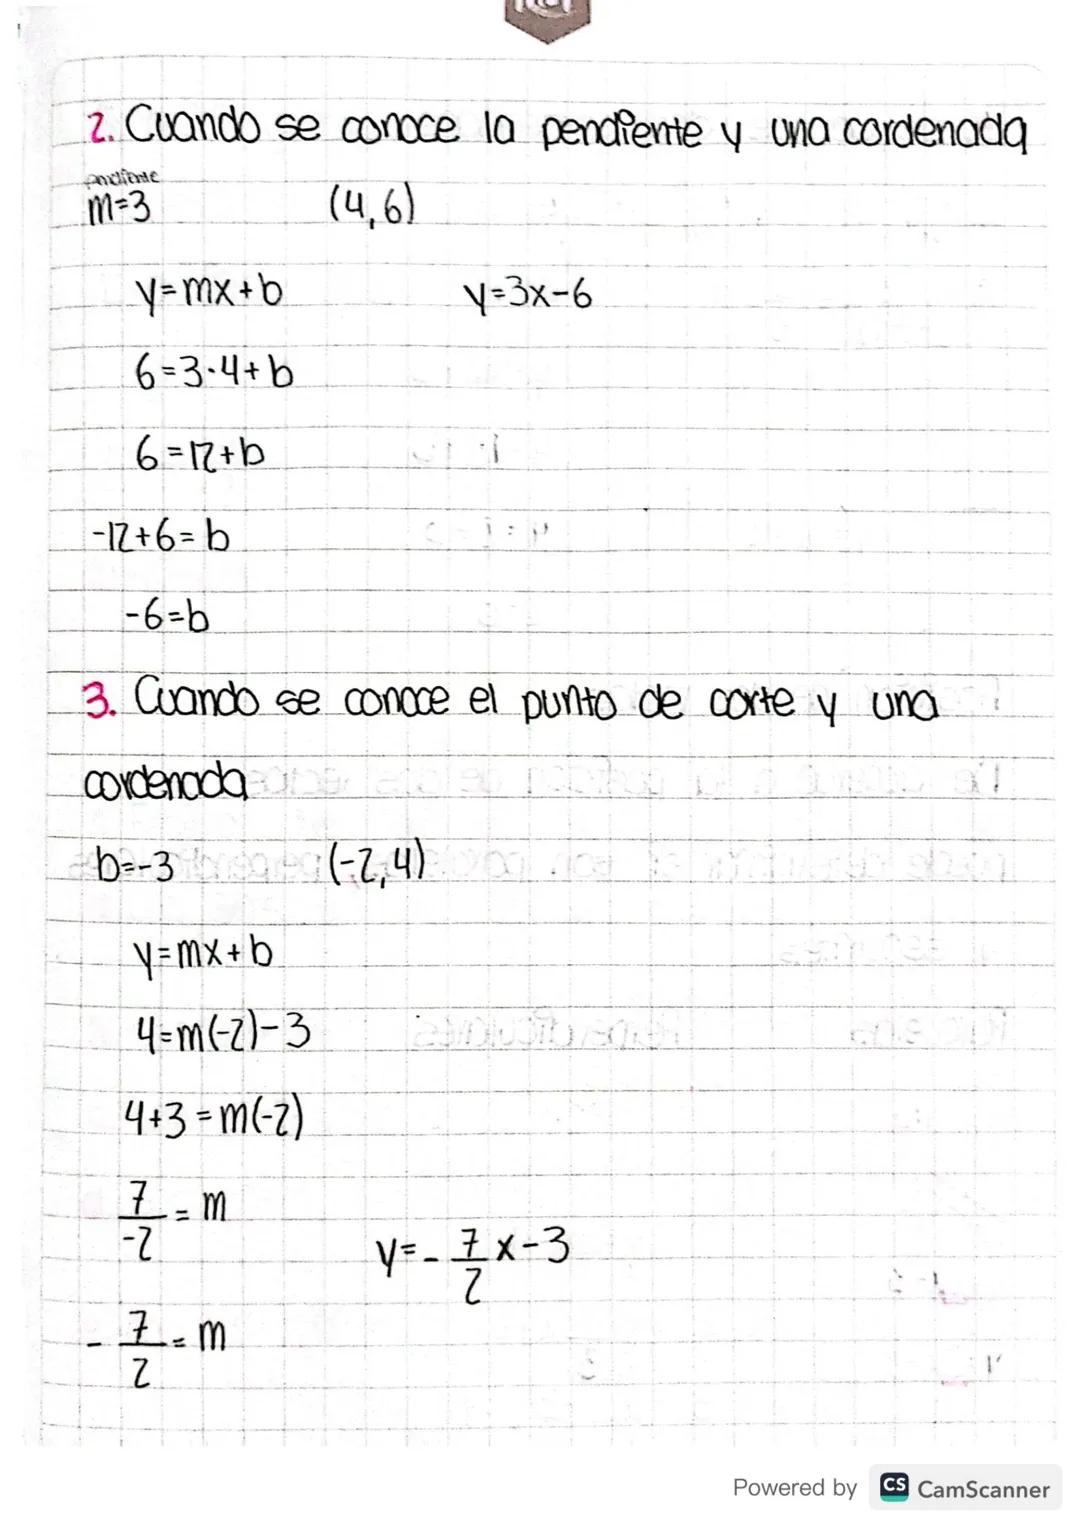 2. Cuando se conoce la pendiente y una cordenada
pendiente
m=3 (4,6)
y=mx+b y=3x-6
6=3·4+b
6=12+b
-12+6=b
-6=b
3. Cuando se conoce el punto de corte y una
cordenada
b=-3 (-2,4)
y=mx+b
4=m(-2)-3
4+3=m(-2)
7/-2=m
y=-7/2x-3
-7/2=m
Powered by CS CamScanner